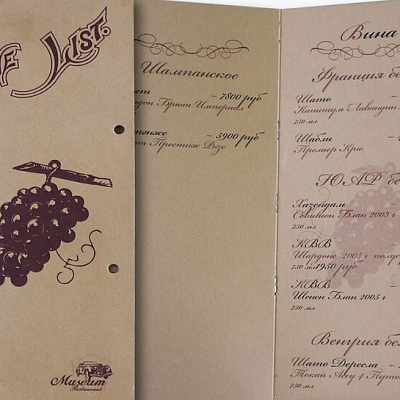 List.
Museum
Restaurant
Шампанское
– 7800 руб
Брют Империал
– 5900 руб
Престиж Розе
Вина
Франция бе
Шато
Капитул Лавандин
Шабли
Премьер Крю
ЮАР бе
Хазендал
Совиньон Блан 2003 г
750 мл
КВВ
Шардоне 2005 г полус
750 мл 1950 руб
КВВ
Шенен Блан 2005 г
750 мл
Венгрия бе
Шато Дересла
Токай Асу 4 Путон
750 мл